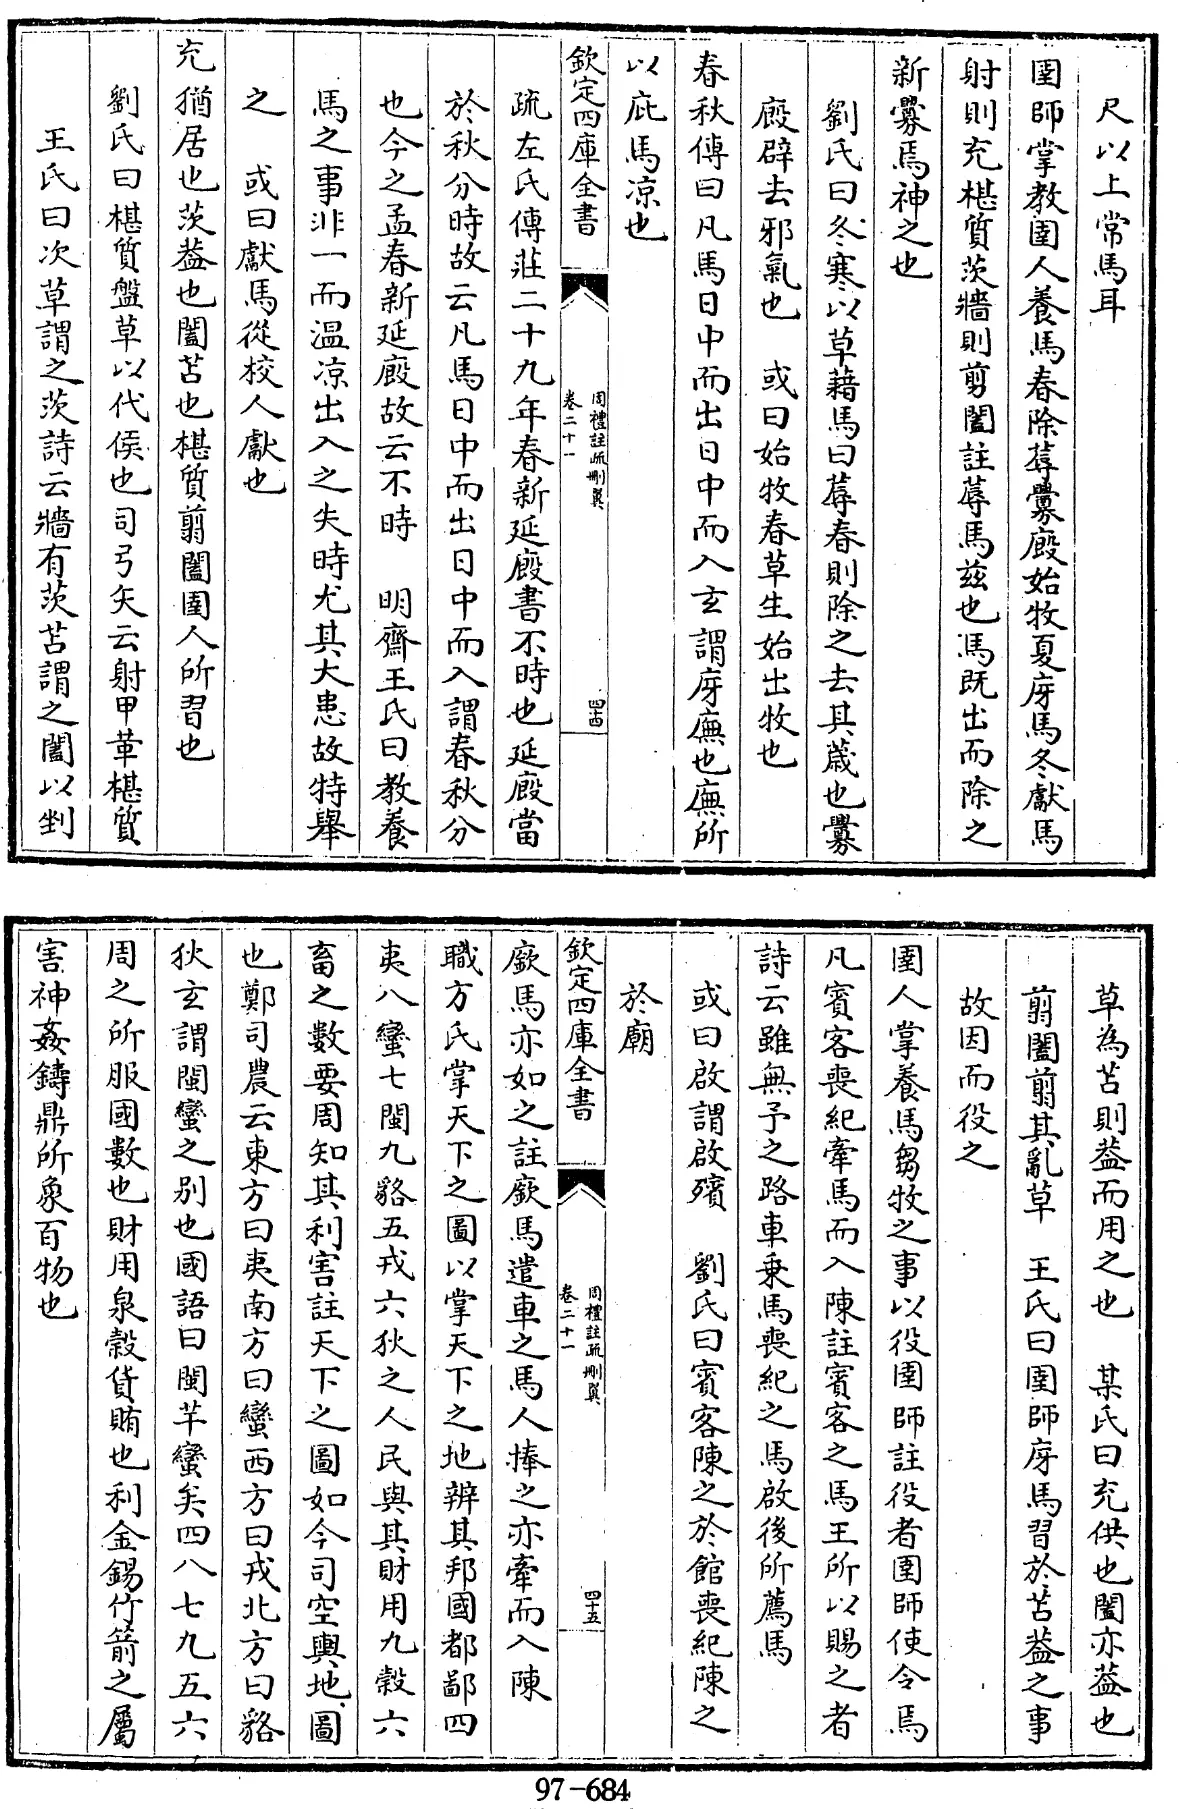 尺以上常馬耳
圉師掌教圉人養馬春除蓐釁廏始牧夏庌馬冬獻馬
射則充椹質茨牆則剪闔註蓐馬茲也馬既出而除之
新釁焉神之也
劉氏曰冬寒以草藉馬曰蓐春則除之去其薉也釁
廏辟去邪氣也　或曰始牧春草生始出牧也
春秋傳曰凡馬日中而出日中而入玄謂庌廡也廡所
以庇馬凉也
欽定四庫全書
周禮註疏刪翼
卷二十一
四十四
疏左氏傳莊二十九年春新延廏書不時也延廏當
於秋分時故云凡馬日中而出日中而入謂春秋分
也今之孟春新延廏故云不時　明齋王氏曰教養
馬之事非一而温凉出入之失時尤其大患故特舉
之　或曰獻馬從校人獻也
充猶居也茨葢也闔苫也椹質翦闔圉人所習也
劉氏曰椹質盤草以代侯也司弓矢云射甲革椹質
王氏曰次草謂之茨詩云牆有茨苫謂之闔以剉
草為苫則葢而用之也　某氏曰充供也闔亦葢也
翦闔翦其亂草　王氏曰圉師庌馬習於苫葢之事
故因而役之
圉人掌養馬芻牧之事以役圉師註役者圉師使令焉
凡賓客喪紀牽馬而入陳註賓客之馬王所以賜之者
詩云雖無予之路車乗馬喪紀之馬啟後所薦馬
或曰啟謂啟殯　劉氏曰賓客陳之於館喪紀陳之
於廟
欽定四庫全書
周禮註疏刪翼
卷二十一
四十五
廞馬亦如之註廞馬遣車之馬人捧之亦牽而入陳
職方氏掌天下之圖以掌天下之地辨其邦國都鄙四
夷八蠻七閩九貉五戎六狄之人民與其財用九穀六
畜之數要周知其利害註天下之圖如今司空輿地圖
也鄭司農云東方曰夷南方曰蠻西方曰戎北方曰貉
狄玄謂閩蠻之别也國語曰閩芊蠻矣四八七九五六
周之所服國數也財用泉穀貨賄也利金錫竹箭之屬
害神姦鑄鼎所象百物也
97-684